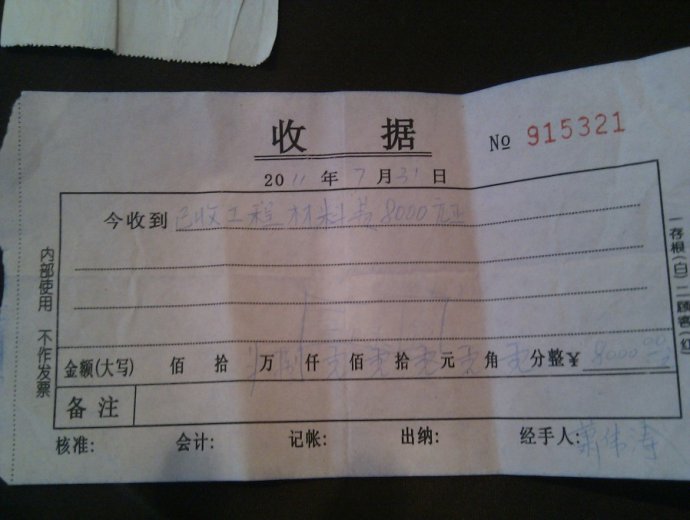 收 据
No 915321
2011 年 7 月 31 日
今收到 已收工程材料费8000元正
金额(大写) 佰 拾 万 捌 仟 零 佰 零 拾 零 元 零 角 零 分整 ¥ 8000.00
备 注
核准: 会计: 记帐: 出纳: 经手人: 萧伟涛
内部使用 不作发票
一存根(白)二顾客(红)